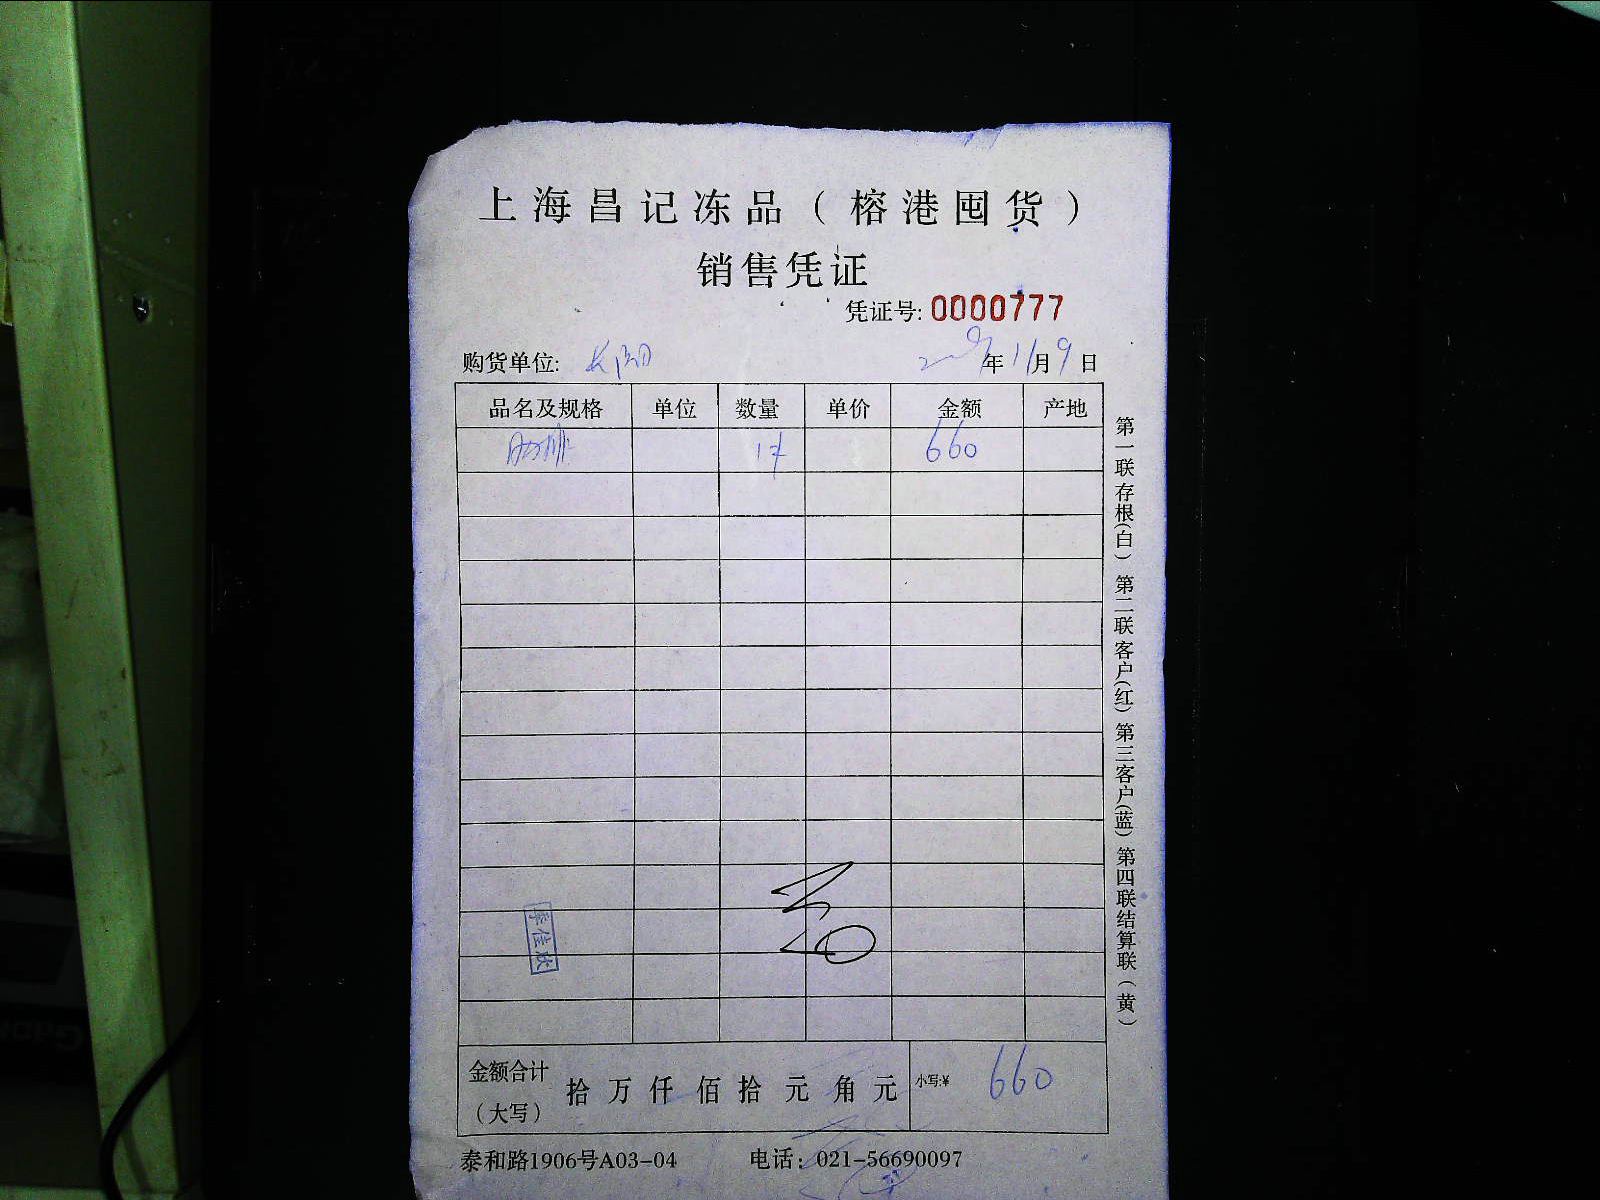 上海昌记冻品（榕港囤货）
销售凭证
凭证号: 0000777
购货单位: 年 11月 9日
品名及规格 单位 数量 单价 金额 产地
660
金额合计（大写） 拾 万 仟 佰 拾 元 角 元 小写:¥ 660
泰和路1906号A03-04 电话：021-56690097
第一联存根(白) 第二联客户(红) 第三客户(蓝) 第四联结算联(黄)